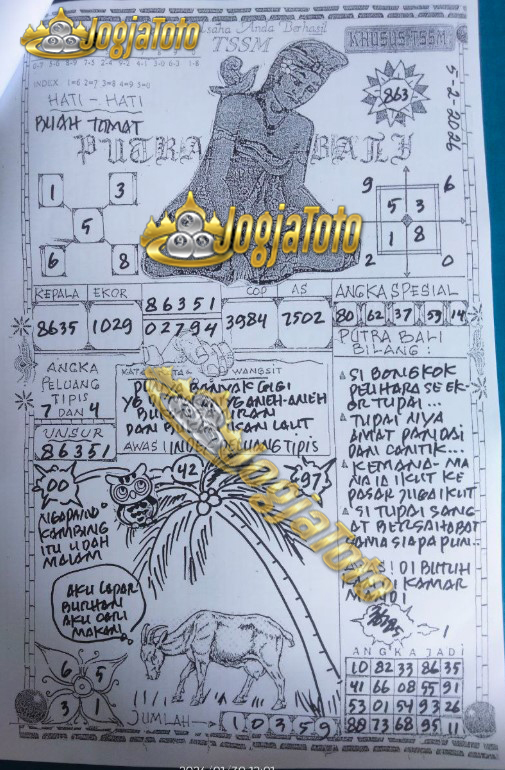 JogjaToto
Usaha Anda Berhasil
TSSM
KHUSUS TSSM
INDEX. 1=6 2=7 3=8 4=9 5=0
HATI - HATI
BUAH TOMAT
863
5-2-2026
PUTRA BALI
1 3
5
6 8
JogjaToto
9 6
5 3
1 8
2 0
KEPALA EKOR
8635 1029
86351
02794
COP AS
3984 7502
ANGKA SPESIAL
80 62 37 59 14
ANGKA
PELUANG
TIPIS
7 DAN 4
UNSUR
86351
WANGSIT
BANYAK
ANEH-ANEH
LAUT
AWAS
TIPIS
JogjaToto
PUTRA BALI
BILANG:
SI BONGKOK
PELIHARA SE EK-
OR TUPAI...
TUPAI NYA
AMAT PANDAI
DAN CANTIK...
KEMANA-MA
NA IA IKUT KE
PASAR JUGA IKUT
SI TUPAI SANG
AT BERSAHABAT
SAMA SIAPA PUN...
DI BUTUH
KAMAR
MANDI
00
42
97
NGAPAIN
KAMBING
ITU UDAH
MALAM
AKU LAPAR
AKU CARI
MAKAN.
6 5
3 1
JUMLAH
1 0 3 5 9
ANGKA JADI
10 82 33 86 35
41 66 08 55 91
53 01 54 93 26
88 73 68 95 11